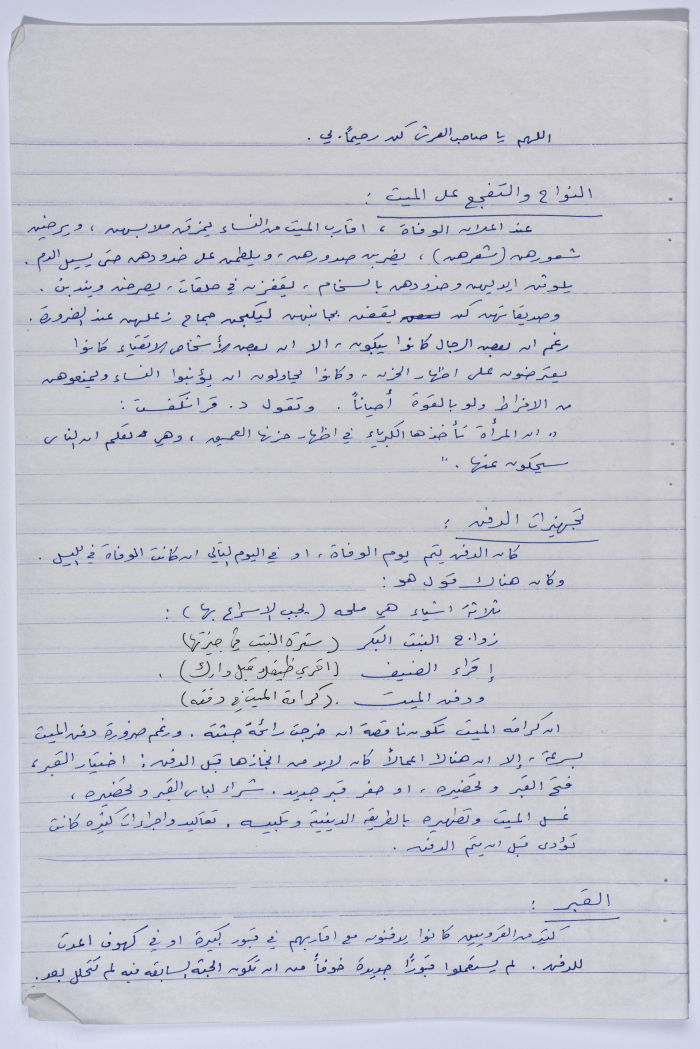 اللهم يا صاحب العرش كن رحيماً بي .
النواح والتفجع على الميت :
عند اعلان الوفاة ، اقارب الميت من النساء يمزقن ملابسهن ، ويرخين
شعورهن (شعرهن) ، يضربن صدورهن ، ويلطمن على خدودهن حتى يسيل الدم .
يلوثن ايديهن وخدودهن بالسخام ، يقفزن في حلقات ، يصرخن ويندبن .
وصديقاتهن كن يقفن بجانبهن ليكبحن جماح زعلهن عند الضرورة .
رغم ان بعض الرجال كانوا يبكون ، الا ان بعض الأشخاص الاتقياء كانوا
يعترضون على اظهار الحزن ، وكانوا يحاولون ان يؤنبوا النساء ويمنعوهن
من الافراط ولو بالقوة أحياناً . وتقول د. قرانكفست :
" ان المرأة تأخذها الكبرياء في اظهار حزنها العميق ، وهي تعلم ان الناس
سيحكون عنها . "
تجهيزات الدفن :
كان الدفن يتم يوم الوفاة ، او في اليوم التالي ان كانت الوفاة في الليل .
وكان هناك قول هو :
ثلاثة اشياء هي ملحه (يجب الاسراع بها) :
زواج البنت البكر (سترة البنت في جيزتها)
إقراء الضيف (اقري ظيفك قبل وارك) .
ودفن الميت . (كرامة الميت في دفنه)
ان كرامة الميت تكون ناقصة ان خرجت رائحة جثته . ورغم ضرورة دفن الميت
بسرعة ، إلا ان هناك اعمالاً كان لابد من انجازها قبل الدفن : اختيار القبر ،
فتح القبر وتحضيره ، او حفر قبر جديد . شراء لباس القبر وتحضيره ،
غسل الميت وتطهيره بالطريقة الدينية وتلبيسه . تقاليد واجراءات كثيره كانت
تؤدى قبل ان يتم الدفن .
القبر :
كثير من القرويين كانوا يدفنون مع اقاربهم في قبور كبيرة او في كهوف اعدت
للدفن . لم يستعملوا قبورًا جديدة خوفاً من ان تكون الجثة السابقه فيه لم تتحلل بعد .